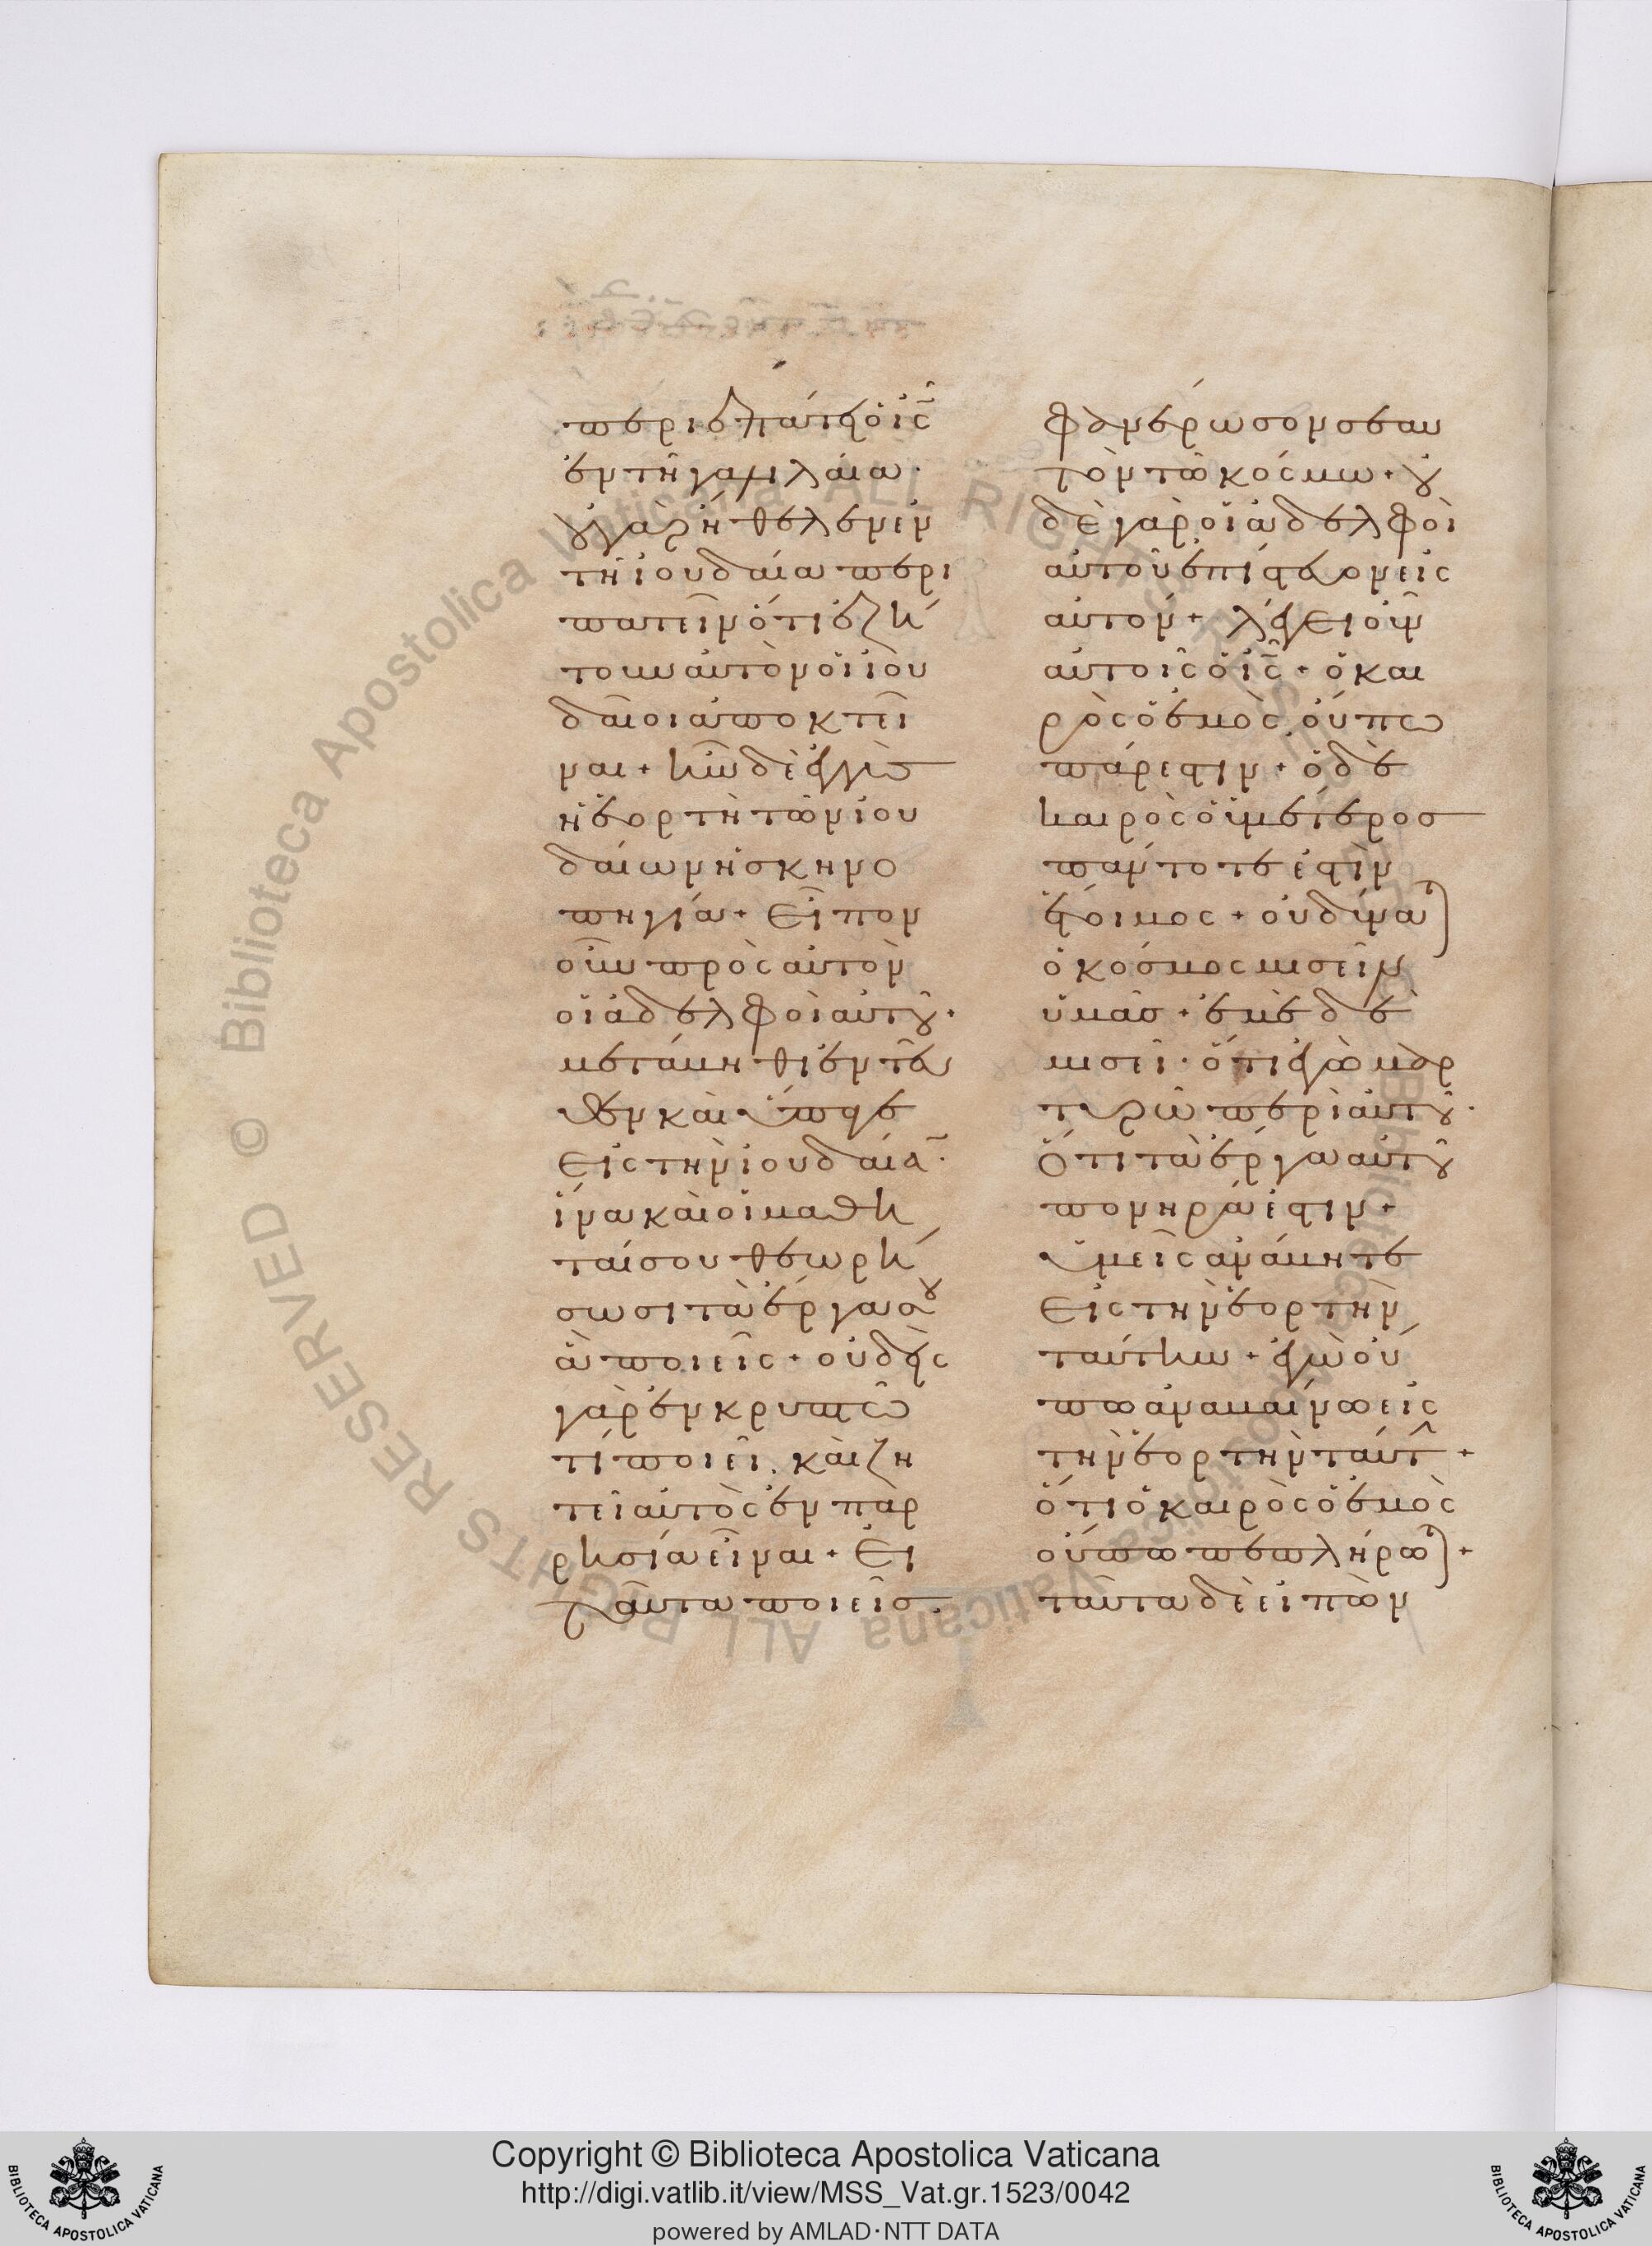 περιεπάτει ὁ ἰς̅
ἐν τῆ γαλιλαία·
οὐ γὰρ ἤθελεν ἐν
τῆ ἰουδαία περι
πατεῖν ὅτι ἐζή
τουν αὐτὸν οἱ ἰου
δαῖοι ἀποκτεῖ
ναι + ἦν δὲ ἐγγὺς
ἡ ἑορτὴ τῶν ἰου
δαίων ἡ σκηνο
πηγία + εἶπον
οὖν πρὸς αὐτὸν
οἱ ἀδελφοὶ αὐτοῦ +
μετάβηθι ἐντεῦ
θεν καὶ ὕπαγε
εἰς τὴν ἰουδαίαν·
ἵνα καὶ οἱ μαθη
ταί σου θεωρή
σωσι τὰ ἔργα σου
ἃ ποιεῖς + οὐδεὶς
γὰρ ἐν κρυπτῶ
τί ποιεῖ. καὶ ζη
τεῖ αὐτὸς ἐν παρ
ρησία εἶναι + εἰ
ταῦτα ποιεῖς.
φανέρωσον σεαυ
τὸν τῶ κόσμω + οὐ
δὲ γὰρ οἱ ἀδελφοὶ
αὐτοῦ ἐπίστευον εἰς
αὐτόν + λέγει οὖν
αὐτοῖς ὁ ἰς̅ + ὁ και
ρὸς ὁ ἐμὸς οὔπω
πάρεστιν + ὁ δὲ
καιρὸς ὁ ὑμέτερος
πάντοτέ ἐστὶν
ἕτοιμος + οὐ δύναται
ὁ κόσμος μισεῖν
ὑμᾶς + ἐμὲ δὲ
μισεῖ· ὅτι ἐγὼ μαρ
τυρῶ περὶ αὐτοῦ·
ὅτι τὰ ἔργα αὐτοῦ
πονηρά ἐστιν +
ὑμεῖς ἀνάβητε
εἰς τὴν ἑορτὴν
ταύτην + ἐγὼ οὔ
πω ἀναβαίνω εἰς
τὴν ἑορτὴν ταύτην +
ὅτι ὁ καιρὸς ὁ ἐμὸς
οὔπω πεπλήρωται +
ταῦτα δὲ εἰπὼν
Copyright © Biblioteca Apostolica Vaticana
http://digi.vatlib.it/view/MSS_Vat.gr.1523/0042
powered by AMLAD·NTT DATA
BIBLIOTECA APOSTOLICA VATICANA
BIBLIOTECA APOSTOLICA VATICANA
© Biblioteca Apostolica Vaticana ALL RIGHTS RESERVED